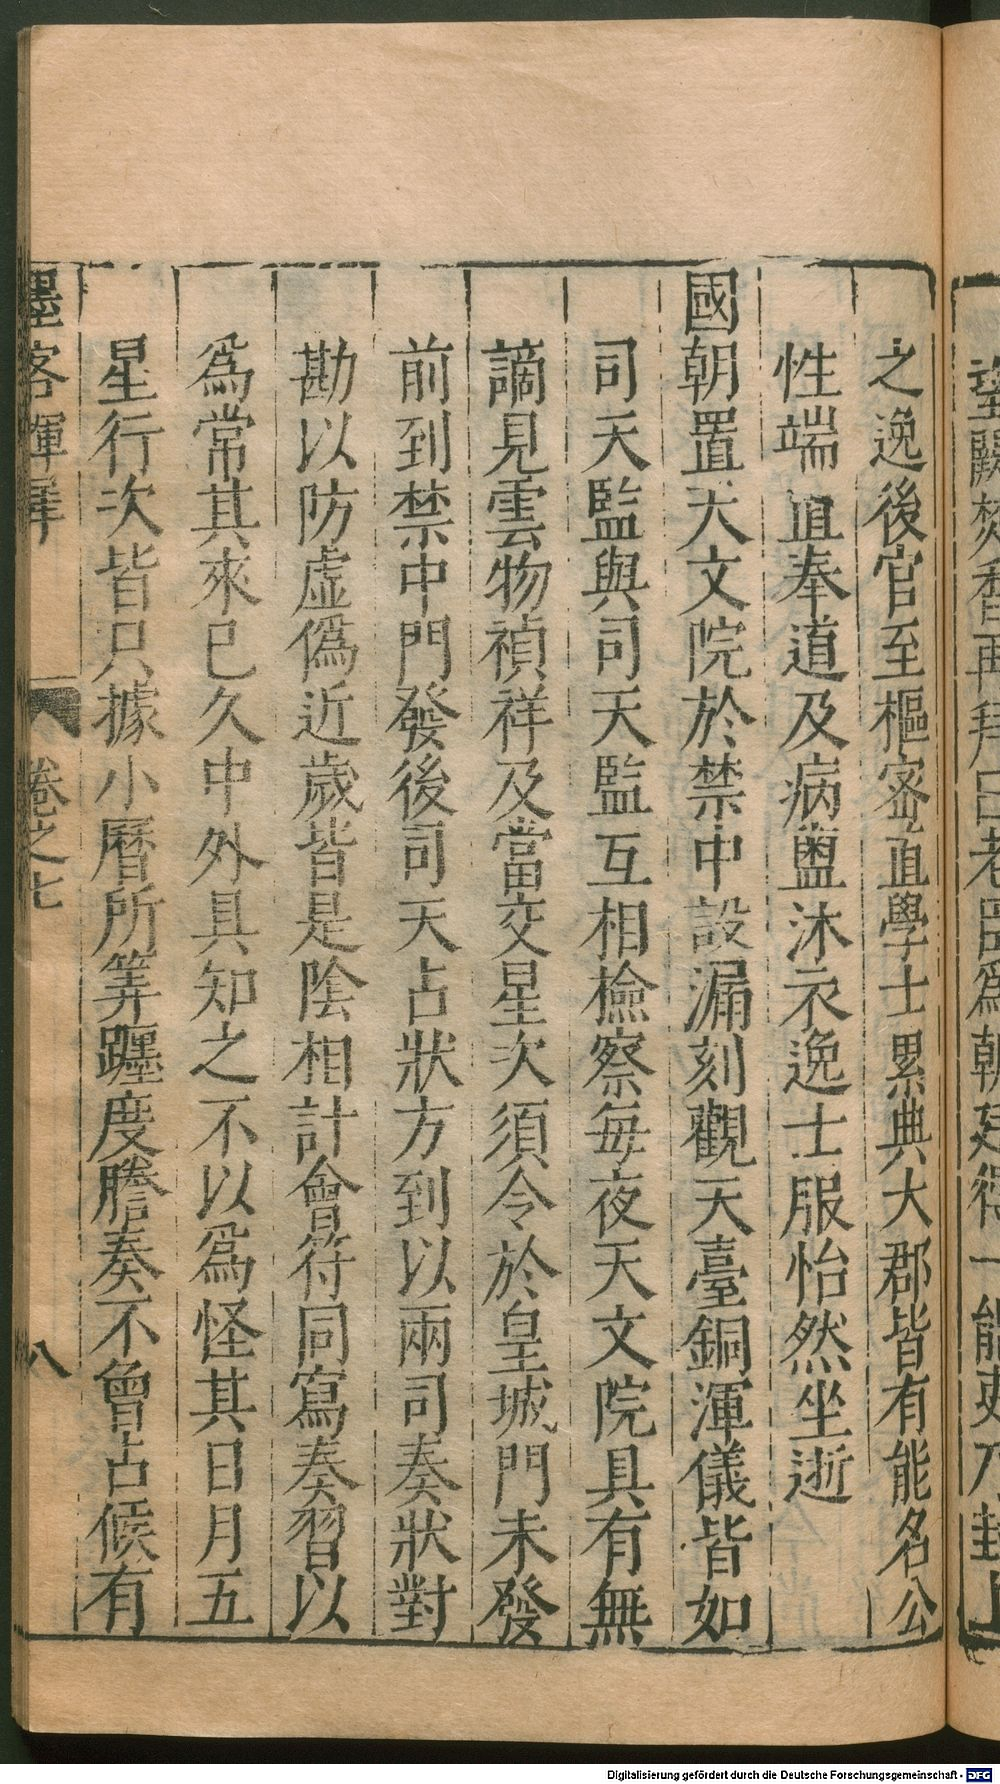 之逸後官至樞密直學士累典大郡皆有能名公
性端直奉道及病盥沐衣逸士服怡然坐逝
國朝置天文院於禁中設漏刻觀天臺銅渾儀皆如
司天監與司天監互相檢察每夜天文院具有無
謫見雲物禎祥及當交星次須令於皇城門未發
前到禁中門發後司天占狀方到以兩司奏狀對
勘以防虛偽近歲皆是陰相計會符同寫奏習以
為常其來已久中外具知之不以為怪其日月五
星行次皆只據小曆所筭躔度謄奏不曾占候有
墨客揮犀 卷之七 八
Digitalisierung gefördert durch die Deutsche Forschungsgemeinschaft - DFG